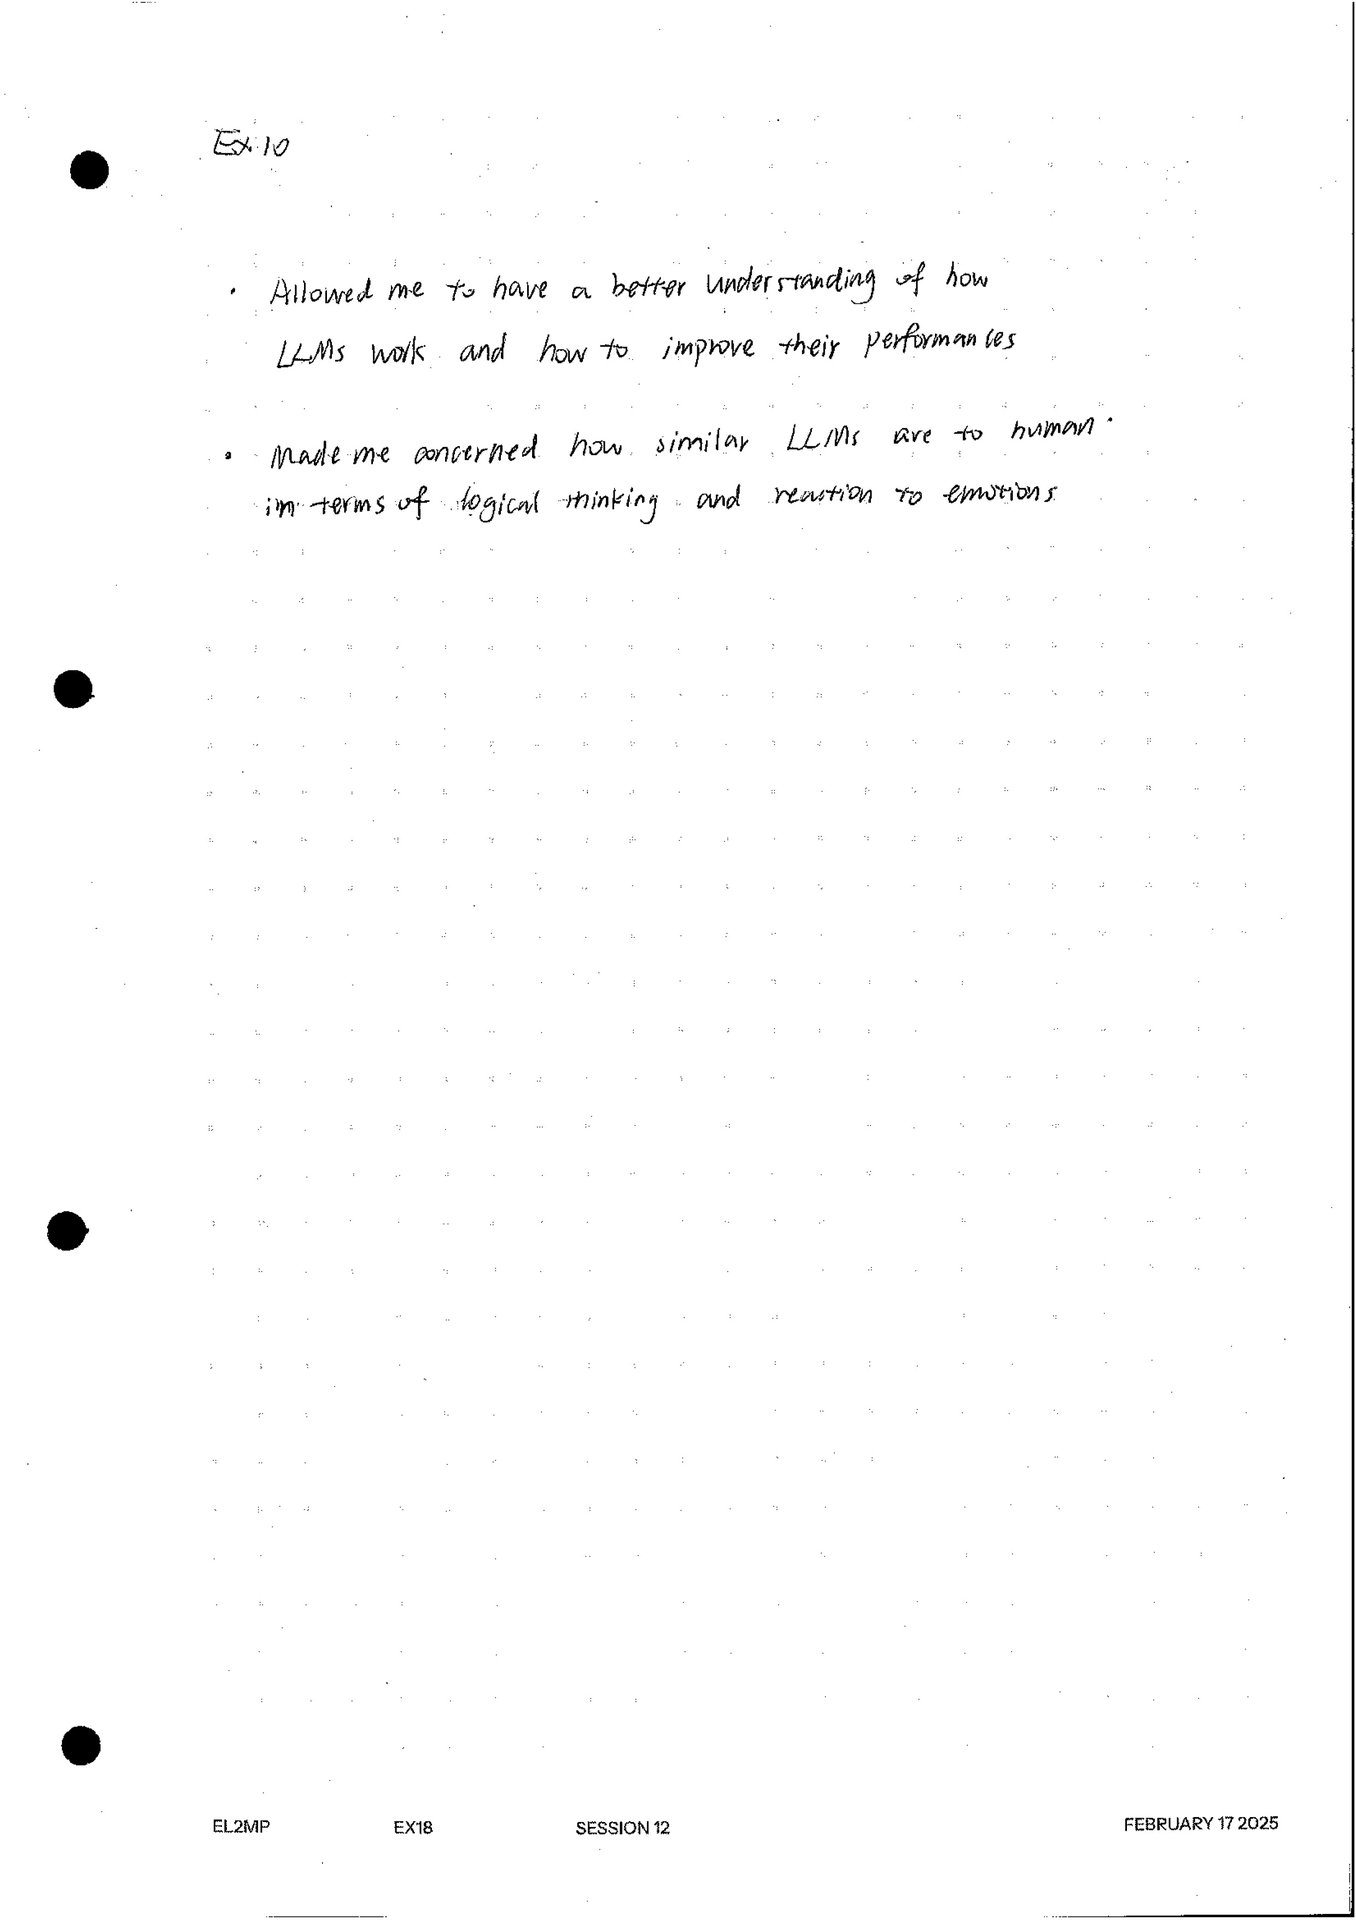 Ex 10
· Allowed me to have a better understanding of how
LLMs work and how to improve their performances
· Made me concerned how similar LLMs are to human
in terms of logical thinking and reaction to emotions
EL2MP EX18 SESSION 12 FEBRUARY 17 2025